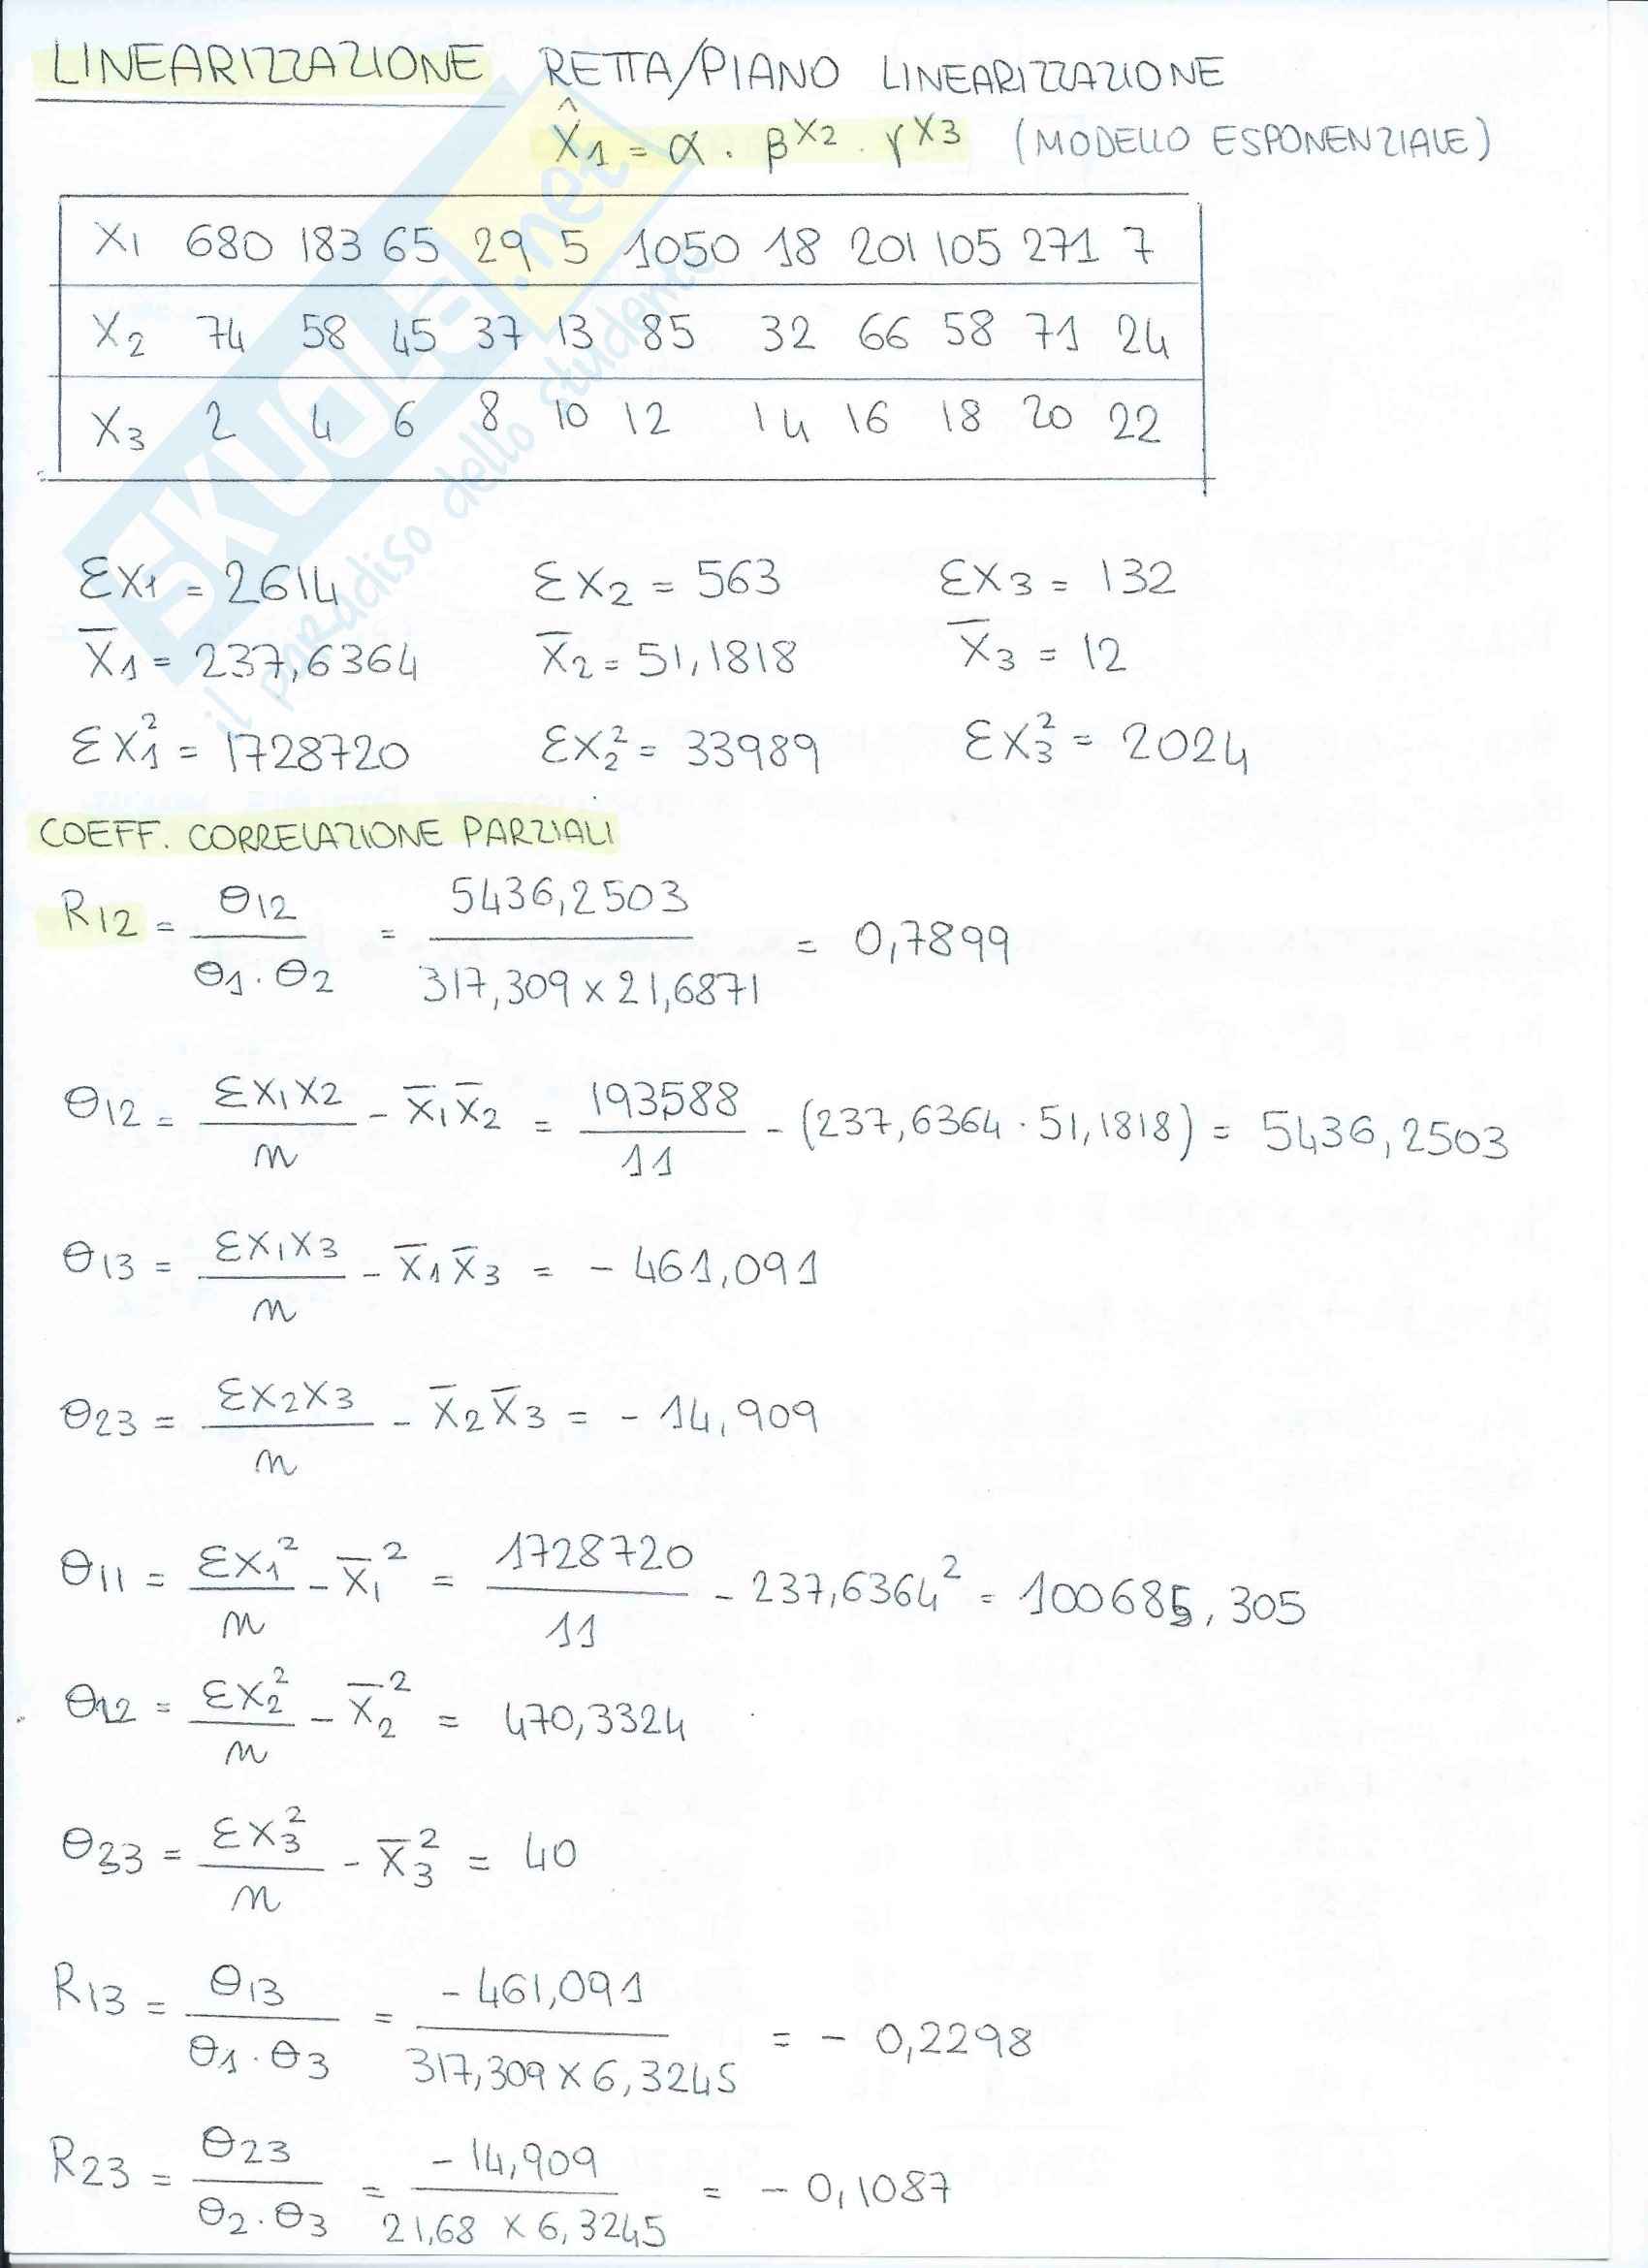 LINEARIZZAZIONE RETTA/PIANO LINEARIZZAZIONE
X̂1 = α · β^X2 · γ^X3 (MODELLO ESPONENZIALE)
X1 680 183 65 29 5 1050 18 201 105 271 7
X2 74 58 45 37 13 85 32 66 58 71 24
X3 2 4 6 8 10 12 14 16 18 20 22
ΣX1 = 2614 ΣX2 = 563 ΣX3 = 132
X̄1 = 237,6364 X̄2 = 51,1818 X̄3 = 12
ΣX1² = 1728720 ΣX2² = 33989 ΣX3² = 2024
COEFF. CORRELAZIONE PARZIALI
R12 = θ12 / θ1·θ2 = 5436,2503 / 317,309 x 21,6871 = 0,7899
θ12 = ΣX1X2 / n - X̄1X̄2 = 193588 / 11 - (237,6364 · 51,1818) = 5436,2503
θ13 = ΣX1X3 / n - X̄1X̄3 = - 461,091
θ23 = ΣX2X3 / n - X̄2X̄3 = - 14,909
θ11 = ΣX1² / n - X̄1² = 1728720 / 11 - 237,6364² = 100685,305
θ12 = ΣX2² / n - X̄2² = 470,3324
θ33 = ΣX3² / n - X̄3² = 40
R13 = θ13 / θ1·θ3 = - 461,091 / 317,309 x 6,3245 = - 0,2298
R23 = θ23 / θ2·θ3 = - 14,909 / 21,68 x 6,3245 = - 0,1087
SKUOLA.net
il paradiso dello studente